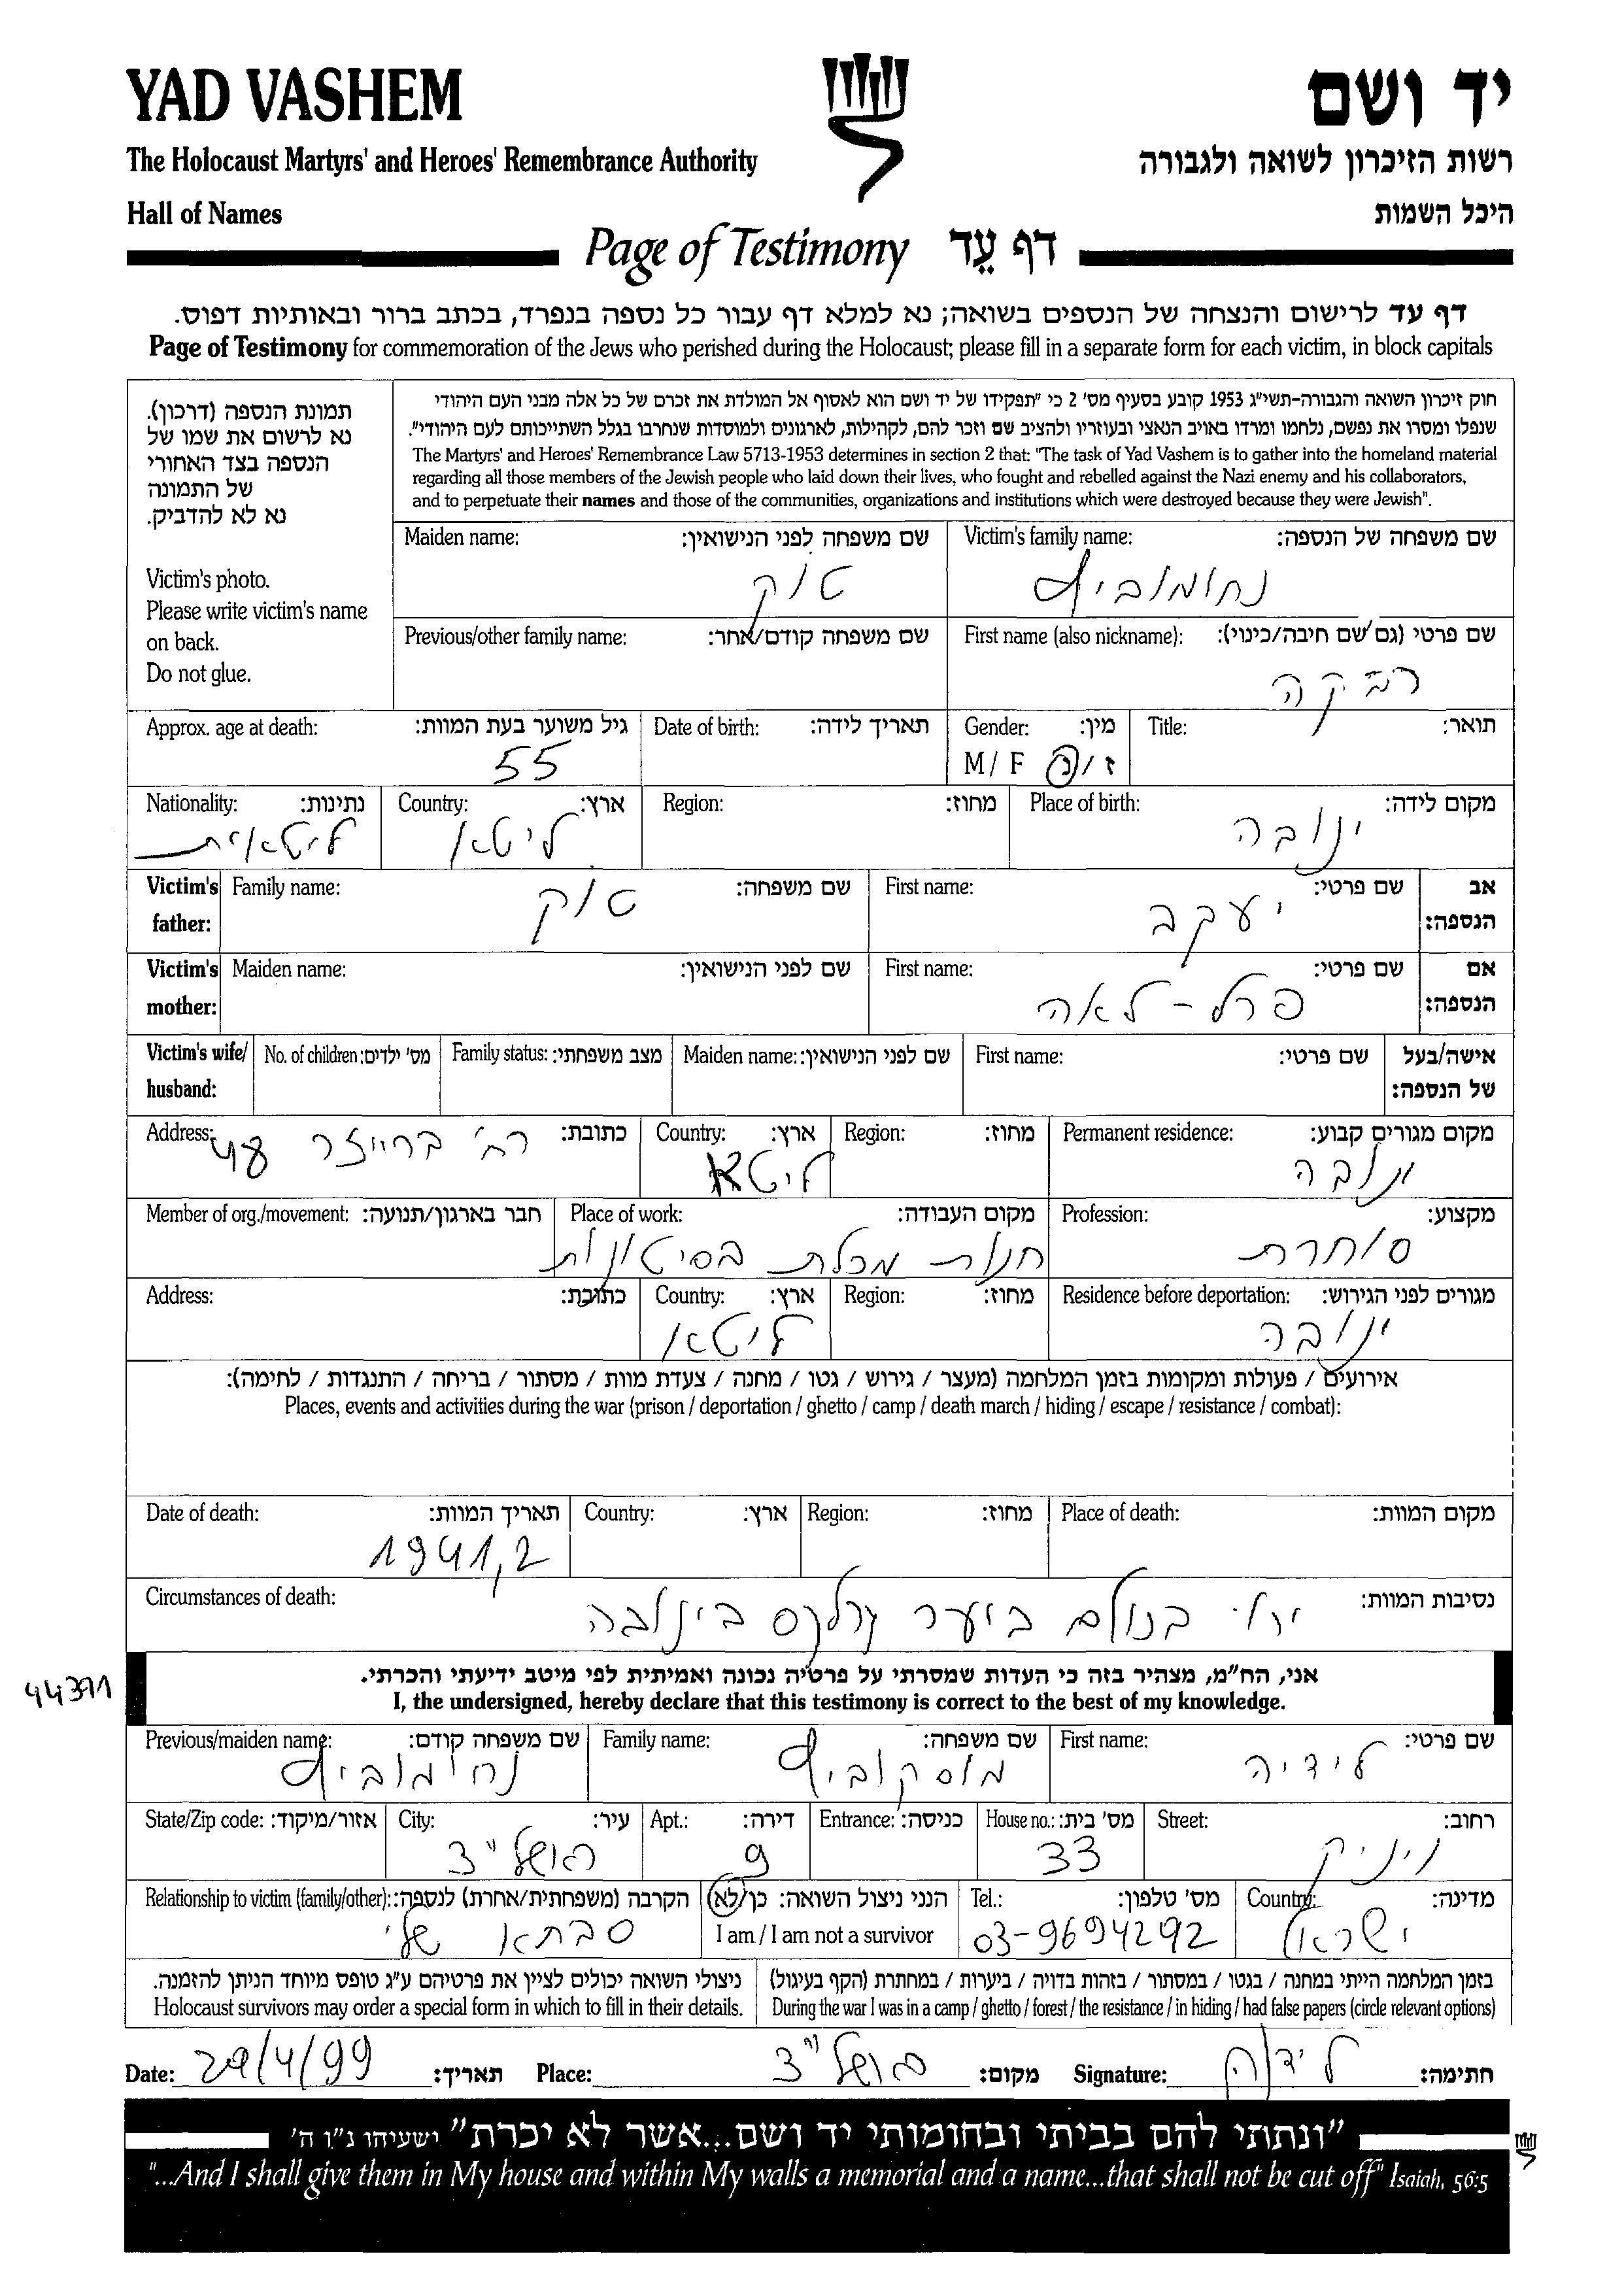 YAD VASHEM
יד ושם
The Holocaust Martyrs' and Heroes' Remembrance Authority
רשות הזיכרון לשואה ולגבורה
Hall of Names
היכל השמות
Page of Testimony דף עֵד
דף עד לרישום והנצחה של הנספים בשואה; נא למלא דף עבור כל נספה בנפרד, בכתב ברור ובאותיות דפוס.
Page of Testimony for commemoration of the Jews who perished during the Holocaust; please fill in a separate form for each victim, in block capitals
תמונת הנספה (דרכון).
נא לרשום את שמו של
הנספה בצד האחורי
של התמונה
נא לא להדביק.
Victim's photo.
Please write victim's name
on back.
Do not glue.
חוק זיכרון השואה והגבורה-תשי"ג 1953 קובע בסעיף מס' 2 כי "תפקידו של יד ושם הוא לאסוף אל המולדת את זכרם של כל אלה מבני העם היהודי
שנפלו ומסרו את נפשם, נלחמו ומרדו באויב הנאצי ובעוזריו ולהציב שם וזכר להם, לקהילות, לארגונים ולמוסדות שנחרבו בגלל השתייכותם לעם היהודי".
The Martyrs' and Heroes' Remembrance Law 5713-1953 determines in section 2 that: "The task of Yad Vashem is to gather into the homeland material
regarding all those members of the Jewish people who laid down their lives, who fought and rebelled against the Nazi enemy and his collaborators,
and to perpetuate their names and those of the communities, organizations and institutions which were destroyed because they were Jewish".
Victim's family name: שם משפחה של הנספה:
נחומוביץ
Maiden name: שם משפחה לפני הנישואין:
טוק
First name (also nickname): שם פרטי (גם שם חיבה/כינוי):
רבקה
Previous/other family name: שם משפחה קודם/אחר:
Title: תואר:
Gender: מין:
M / F ז / נ
Date of birth: תאריך לידה:
Approx. age at death: גיל משוער בעת המוות:
55
Place of birth: מקום לידה:
ינובה
Region: מחוז:
Country: ארץ:
ליטא
Nationality: נתינות:
ליטאית
אב הנספה:
First name: שם פרטי:
יעקב
Family name: שם משפחה:
טוק
Victim's father:
אם הנספה:
First name: שם פרטי:
פרל - לאה
Maiden name: שם לפני הנישואין:
Victim's mother:
אישה/בעל של הנספה:
First name: שם פרטי:
Maiden name: שם לפני הנישואין:
Family status: מצב משפחתי:
No. of children: מס' ילדים:
Victim's wife/ husband:
Permanent residence: מקום מגורים קבוע:
ינובה
Region: מחוז:
Country: ארץ:
ליטא
Address: כתובת:
48
Profession: מקצוע:
סוחרת
Place of work: מקום העבודה:
חנות מכלת בסיטונות
Member of org./movement: חבר בארגון/תנועה:
Residence before deportation: מגורים לפני הגירוש:
ינובה
Region: מחוז:
Country: ארץ:
ליטא
Address: כתובת:
אירועים / פעולות ומקומות בזמן המלחמה (מעצר / גירוש / גטו / מחנה / צעדת מוות / מסתור / בריחה / התנגדות / לחימה):
Places, events and activities during the war (prison / deportation / ghetto / camp / death march / hiding / escape / resistance / combat):
Place of death: מקום המוות:
Region: מחוז:
Country: ארץ:
Date of death: תאריך המוות:
1941,2
Circumstances of death: נסיבות המוות:
ירו בכולם ביער בינובה
44391
אני, הח"מ, מצהיר בזה כי העדות שמסרתי על פרטיה נכונה ואמיתית לפי מיטב ידיעתי והכרתי.
I, the undersigned, hereby declare that this testimony is correct to the best of my knowledge.
First name: שם פרטי:
לידיה
Family name: שם משפחה:
מוסקוביץ
Previous/maiden name: שם משפחה קודם:
נחומוביץ
Street: רחוב:
House no.: מס' בית:
33
Entrance: כניסה:
Apt.: דירה:
9
City: עיר:
ראשל"צ
State/Zip code: אזור/מיקוד:
Country: מדינה:
ישראל
Tel.: מס' טלפון:
03-9694292
הנני ניצול השואה: כן/לא
I am / I am not a survivor
Relationship to victim (family/other): הקרבה (משפחתית/אחרת) לנספה:
סבתא שלי
בזמן המלחמה הייתי במחנה / בגטו / במסתור / בזהות בדויה / ביערות / במחתרת (הקף בעיגול)
During the war I was in a camp / ghetto / forest / the resistance / in hiding / had false papers (circle relevant options)
ניצולי השואה יכולים לציין את פרטיהם ע"ג טופס מיוחד הניתן להזמנה.
Holocaust survivors may order a special form in which to fill in their details.
Date: 29/4/99 תאריך: Place: ראשל"צ מקום: Signature: לידיה חתימה:
"ונתתי להם בביתי ובחומותי יד ושם...אשר לא יכרת" ישעיהו נ"ו ה'
"...And I shall give them in My house and within My walls a memorial and a name...that shall not be cut off" Isaiah, 56:5